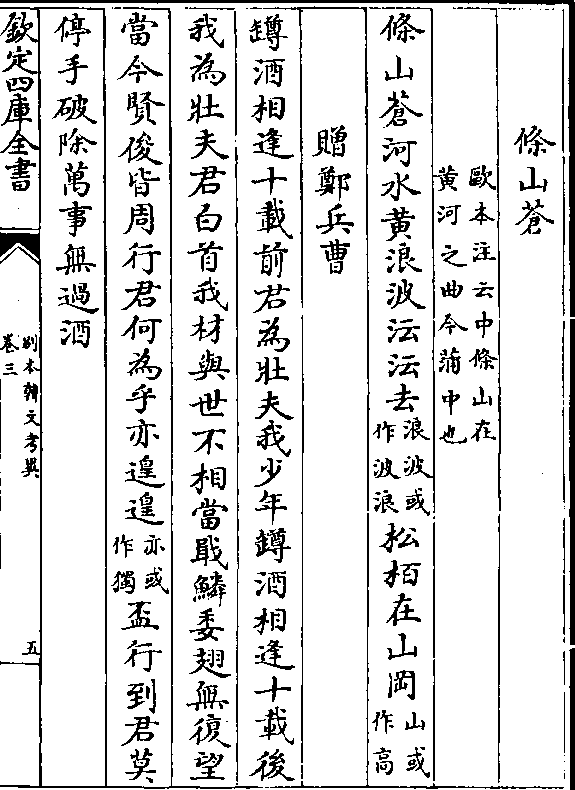 條山蒼
歐本注云中條山在
黄河之曲今蒲中也
條山蒼河水黄浪波沄沄去浪波或作波浪松栢在山岡山或作高
贈鄭兵曹
罇酒相逢十載前君為壯夫我少年罇酒相逢十載後
我為壯夫君白首我材與世不相當戢鱗委翅無復望
當今賢俊皆周行君何為乎亦遑遑亦或作獨盃行到君莫
停手破除萬事無過酒
欽定四庫全書
别本韓文考異
卷三
五